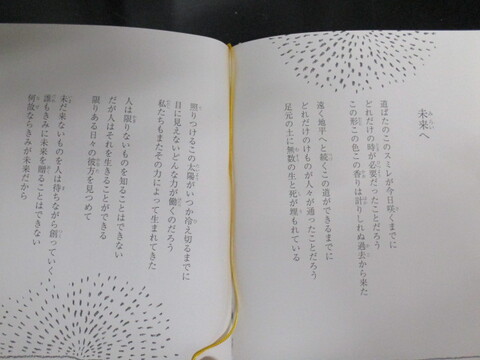 未来へ
道ばたのこのスミレが今日咲くまでに
どれだけの時が必要だったことだろう
この形この色この香りは計りしれぬ過去から来た
遠く地平へと続くこの道ができるまでに
どれだけのけものが人々が通ったことだろう
足元の土に無数の生と死が埋もれている
照りつけるこの太陽がいつか冷え切るまでに
目に見えないどんな力が働くのだろう
私たちもまたその力によって生まれてきた
人は限りないものを知ることはできない
だが人はそれを生きることができる
限りある日々の彼方を見つめて
未だ来ないものを人は待ちながら創っていく
誰もきみに未来を贈ることはできない
何故ならきみが未来だから